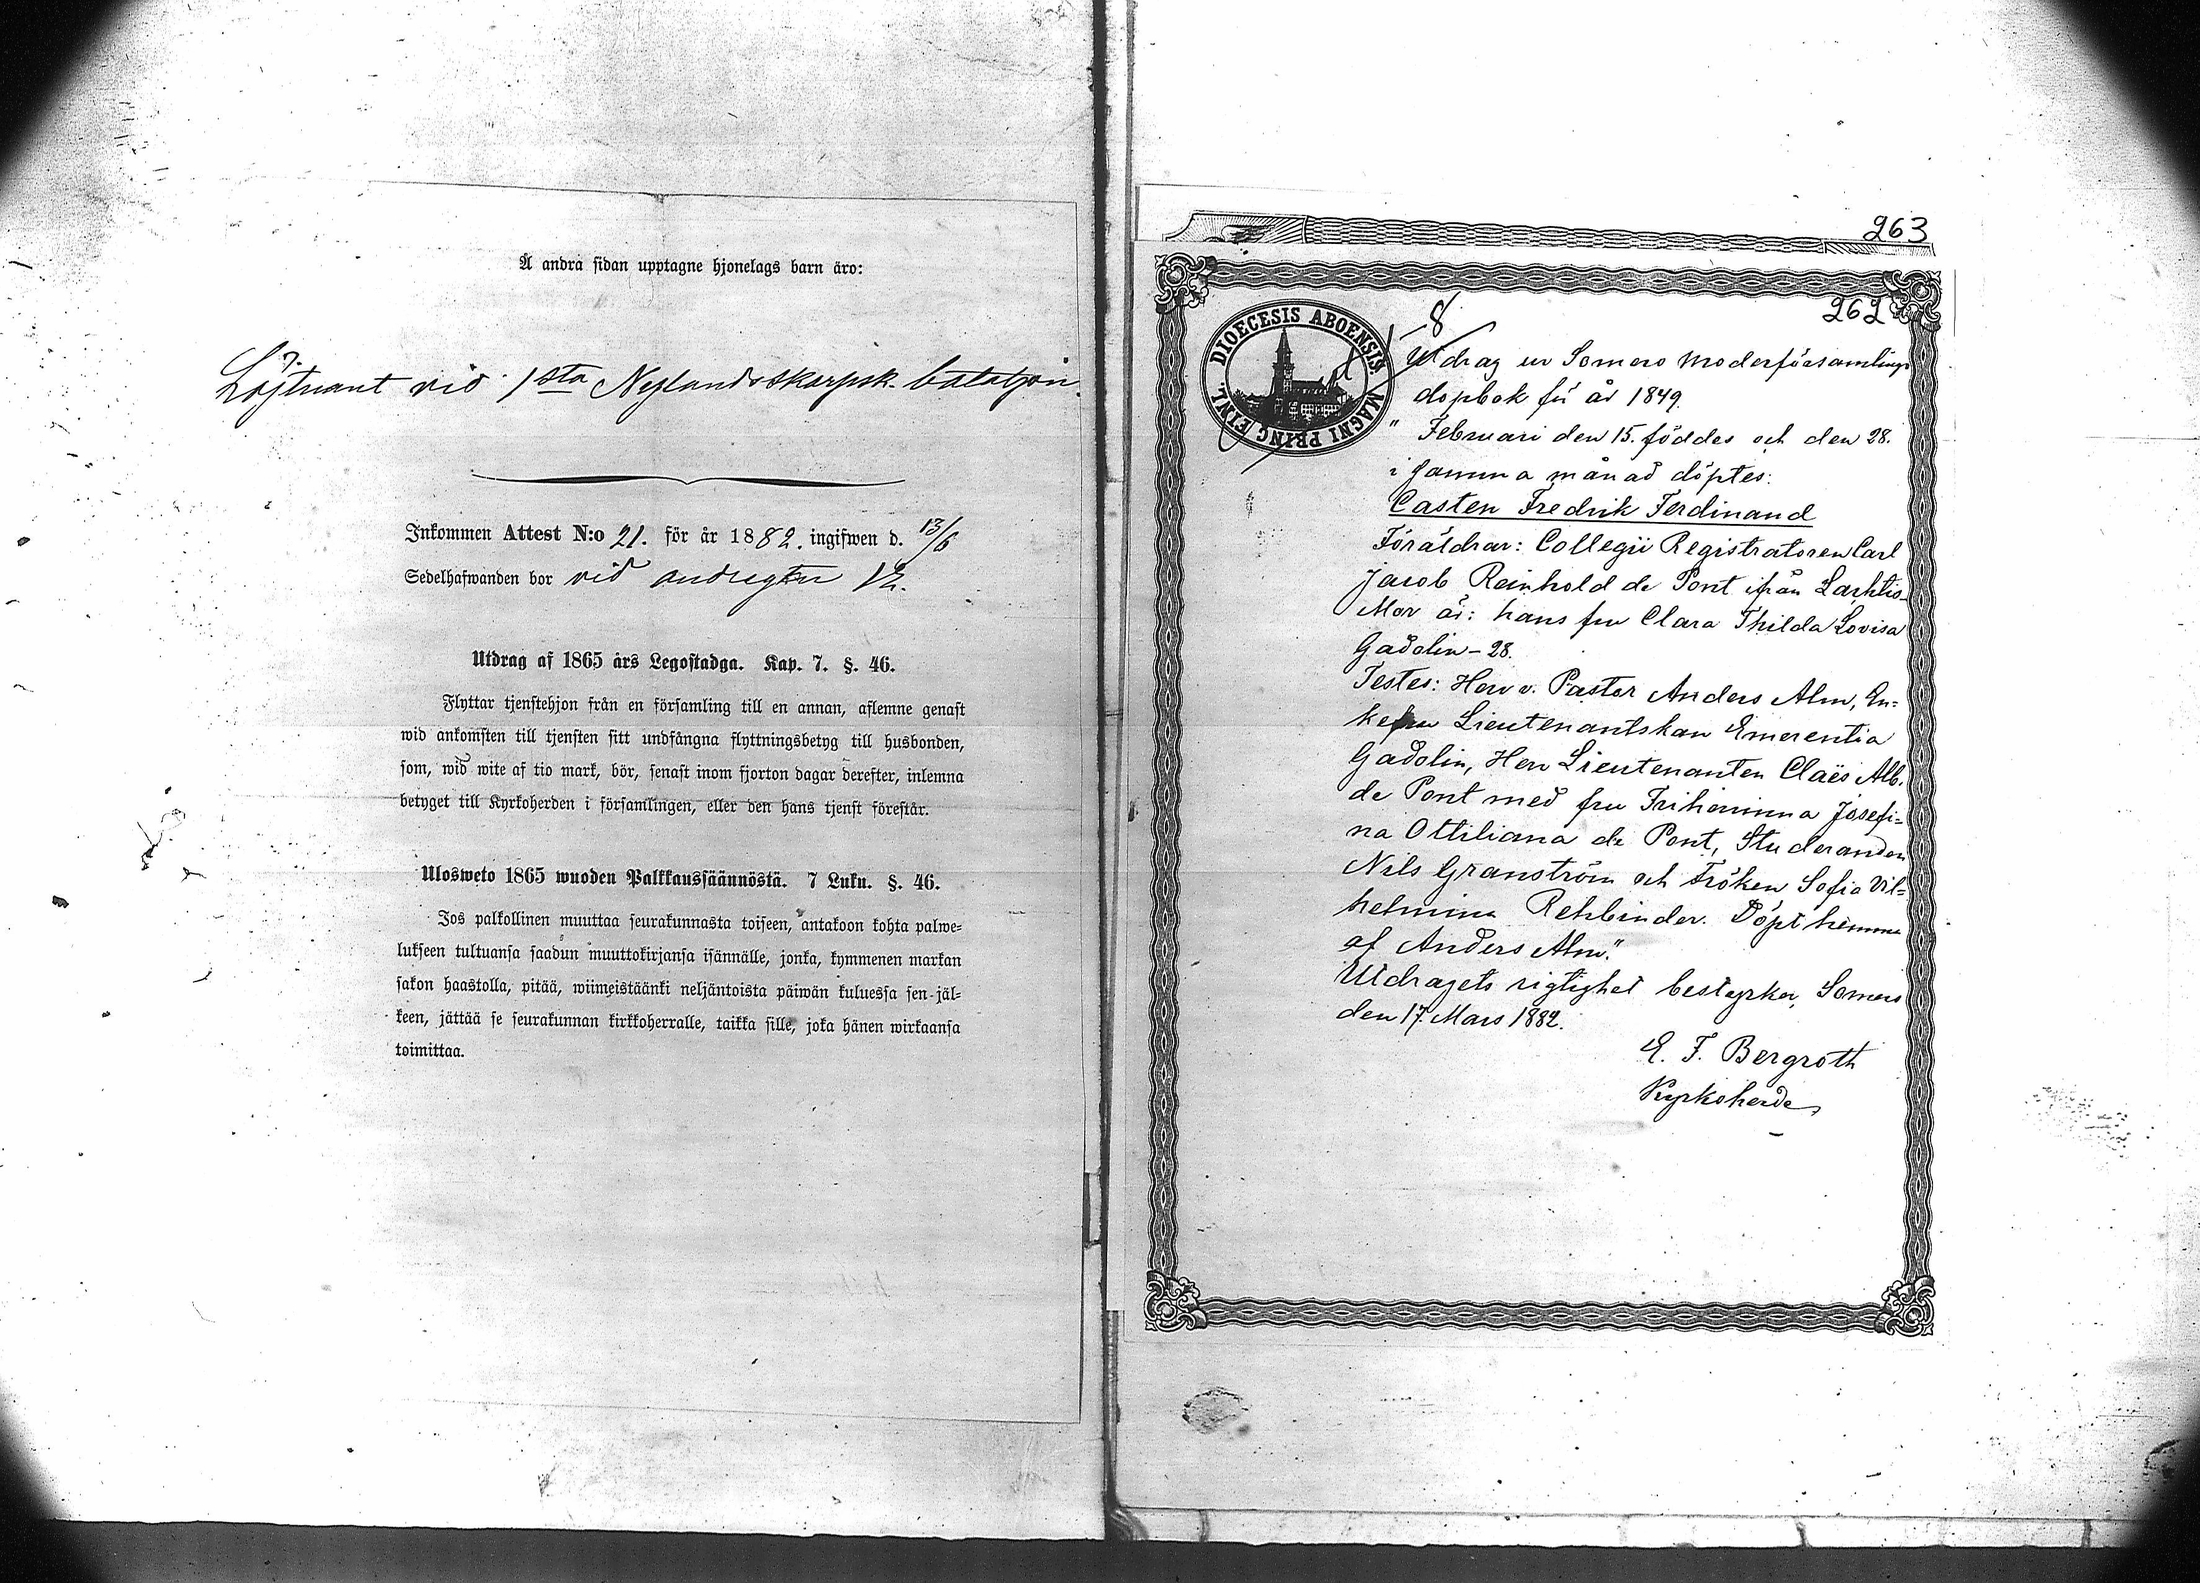 Å andra sidan upptagne hjonelags barn äro:
Löjtnant vid 1sta Nylands skarpsk. bataljon.
Inkommen Attest N:o 21. för år 1882. ingifwen d. 13/6
Sedelhafwanden bor vid
Utdrag af 1865 års Legostadga. Kap. 7. §. 46.
Flyttar tjenstehjon från en församling till en annan, aflemne genast
wid ankomsten till tjensten sitt undfångna flyttningsbetyg till husbonden,
som, wid wite af tio mark, bör, senast inom fjorton dagar derefter, inlemna
betyget till Kyrkoherden i församlingen, eller den hans tjenst förestår.
Ulosweto 1865 wuoden Palkkaussäännöstä. 7 Luku. §. 46.
Jos palkollinen muuttaa seurakunnasta toiseen, antakoon kohta palwe=
lukseen tultuansa saadun muuttokirjansa isännälle, jonka, kymmenen markan
sakon haastolla, pitää, wiimeistäänki neljäntoista päiwän kuluessa sen jäl=
keen, jättää se seurakunnan kirkkoherralle, taikka sille, joka hänen wirkaansa
toimittaa.
263
262
8
DIOECESIS ABOENSIS. MAGNI PRINC. FINL.
Utdrag ur Somero Moderförsamlings
dopbok för år 1849.
" Februari den 15. föddes och den 28.
i samma månad döptes:
Casten Fredrik Ferdinand
Föräldrar: Collegii Registratoren Carl
Jacob Reinhold de Pont ifrån Larhtis
Mor är: hans fru Clara Thilda Lovisa
Gadolin - 28.
Testes: Herr v. Pastor Anders Alm, En=
kefru Lieutenantskan Emerentia
Gadolin, Herr Lieutenanten Claës Alb.
de Pont med fru Friherrinna Josefi=
na Ottiliana de Pont, Studeranden
Nils Granström och Fröken Sofia Vil=
helmina Rehbinder. Döpt hemma
af Anders Alm."
Utdragets rigtighet bestyrker, Somero
den 17. Mars 1882.
E. F. Bergroth
Kyrkoherde